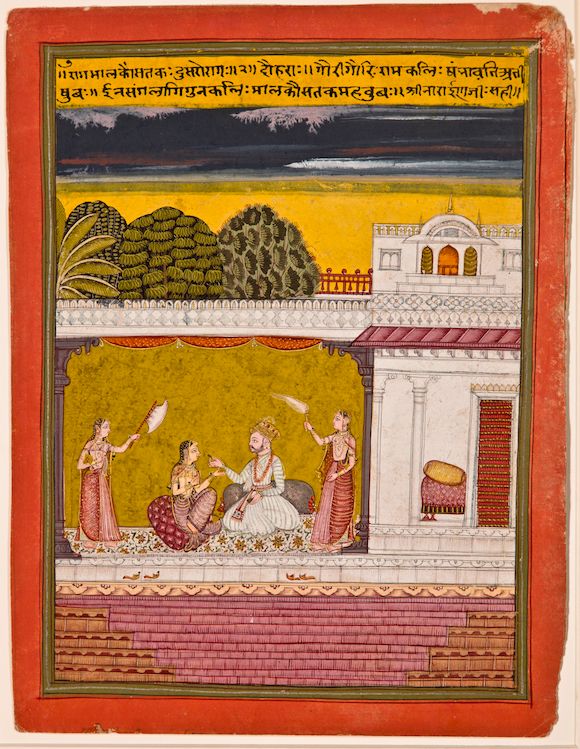 ॥ राग मालकौसतक: दुसरोराग: ॥२॥ दोहरा: ॥ गौरी गौरि: रामकलि: षंभावति अती
षुब: ॥ ईनसंगलगिगुनकलि: मालकौसतकमहबुब: ॥ श्रीनाराईणजी: सही ॥